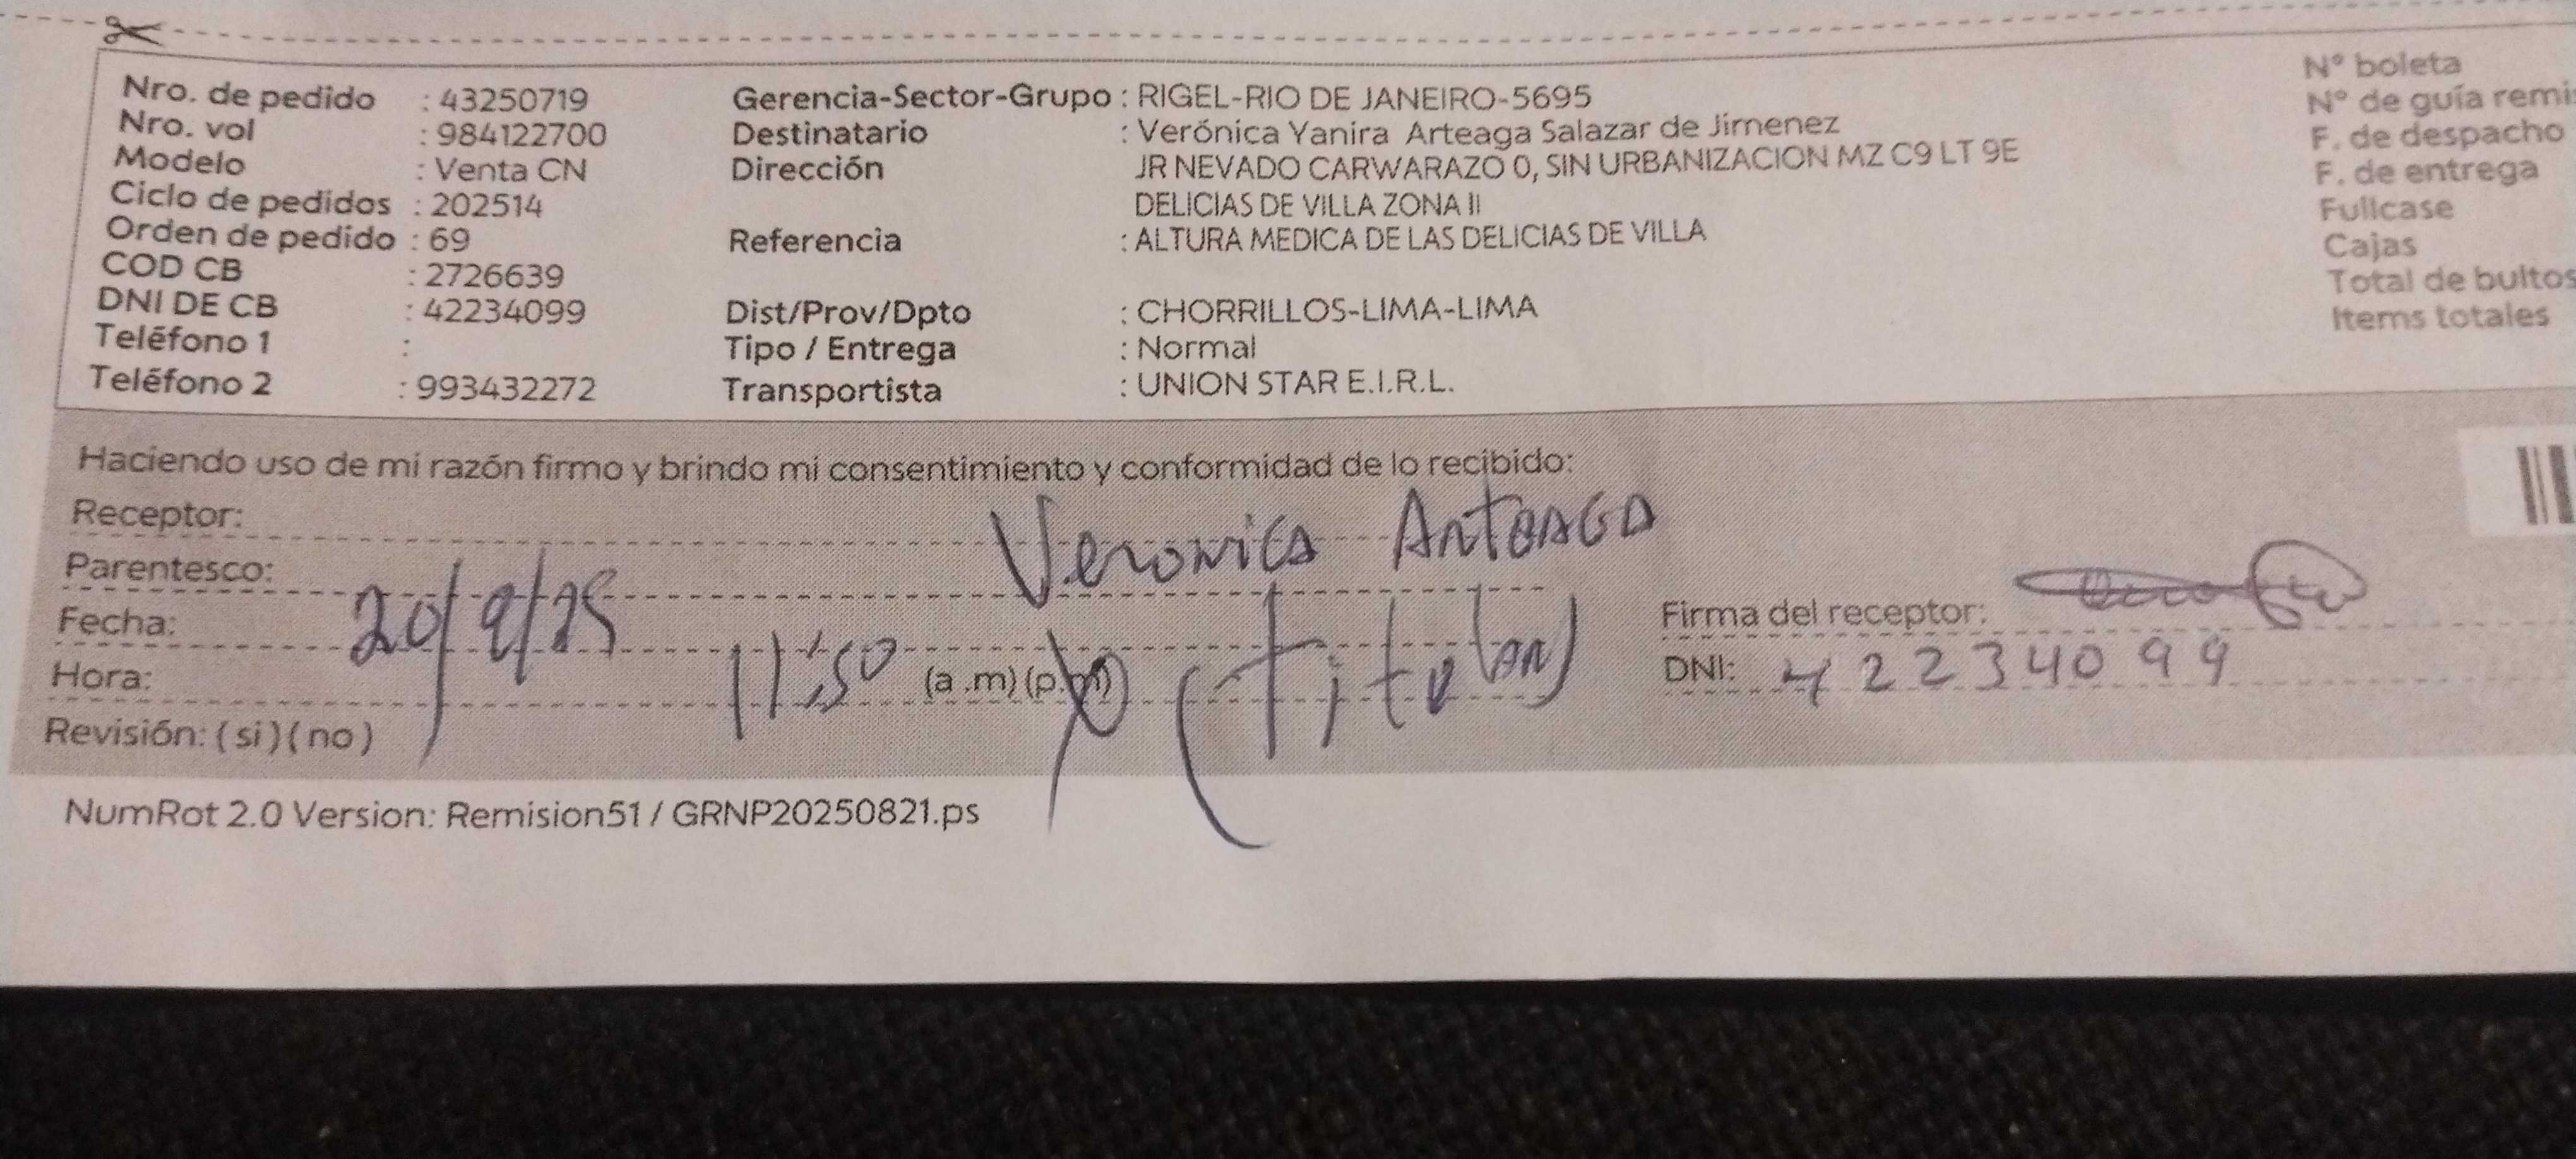 Nro. de pedido : 43250719
Nro. vol : 984122700
Modelo : Venta CN
Ciclo de pedidos : 202514
Orden de pedido : 69
COD CB : 2726639
DNI DE CB : 42234099
Teléfono 1 :
Teléfono 2 : 993432272
Gerencia-Sector-Grupo : RIGEL-RIO DE JANEIRO-5695
Destinatario : Verónica Yanira Arteaga Salazar de Jimenez
Dirección JR NEVADO CARWARAZO 0, SIN URBANIZACION MZ C9 LT 9E
DELICIAS DE VILLA ZONA II
Referencia : ALTURA MEDICA DE LAS DELICIAS DE VILLA
Dist/Prov/Dpto : CHORRILLOS-LIMA-LIMA
Tipo / Entrega : Normal
Transportista : UNION STAR E.I.R.L.
N° boleta
N° de guía remis
F. de despacho
F. de entrega
Fullcase
Cajas
Total de bultos
Items totales
Haciendo uso de mi razón firmo y brindo mi consentimiento y conformidad de lo recibido:
Receptor: Veronica Arteaga
Parentesco: (Titular)
Fecha: 20/9/25
Hora: 11:50 (a .m) (p.m)
Revisión: ( si ) ( no )
Firma del receptor:
DNI: 42234099
NumRot 2.0 Version: Remision51 / GRNP20250821.ps